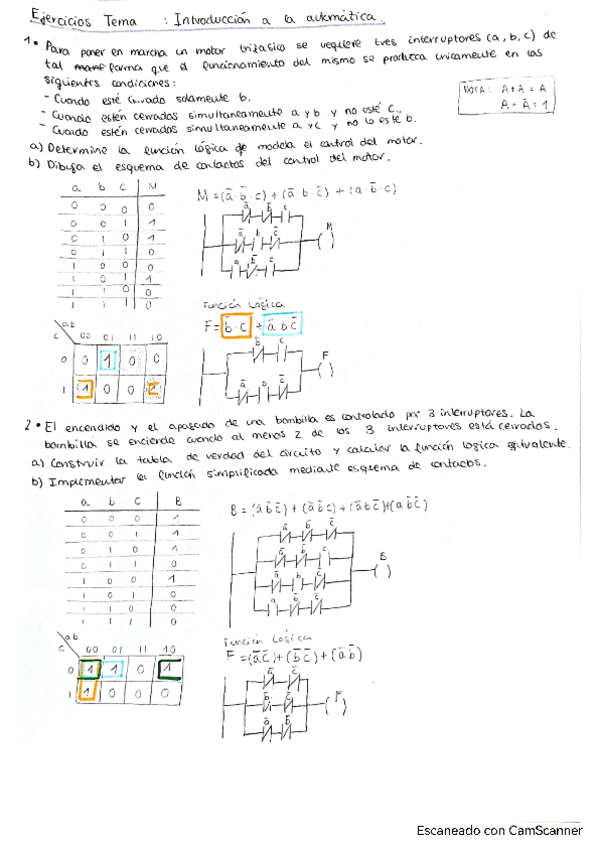 Ejercicios Tema : Introducción a la automática.
1. Para poner en marcha un motor trifásico se requiere tres interruptores (a, b, c) de
tal forma que el funcionamiento del mismo se produzca únicamente en las
siguientes condiciones:
- Cuando esté cerrado solamente b.
- Cuando estén cerrados simultaneamente a y b y no esté c.
- Cuando estén cerrados simultaneamente a y c y no lo esté b.
NOTA: A+A = A
A + Ā = 1
a) Determine la función lógica que modela el control del motor.
b) Dibuja el esquema de contactos del control del motor.
a b c M
0 0 0 0
0 0 1 1
0 1 0 1
0 1 1 0
1 0 0 0
1 0 1 1
1 1 0 0
1 1 1 0
M = (ā · b̄ · c) + (ā · b · c̄) + (a · b̄ · c)
ā b̄ c
ā b c̄
a b̄ c
M
Función Lógica
F = b̄ · c + ā b c̄
b̄ c
ā b c̄
F
ab
c 00 01 11 10
0 0 1 0 0
1 1 0 0 1
2. El encendido y el apagado de una bombilla es controlado por 3 interruptores. La
bombilla se enciende cuando al menos 2 de los 3 interruptores está cerrados.
a) Construir la tabla de verdad del circuito y calcular la función logica equivalente.
b) Implementar la función simplificada mediante esquema de contactos.
a b c B
0 0 0 1
0 0 1 1
0 1 0 1
0 1 1 0
1 0 0 1
1 0 1 0
1 1 0 0
1 1 1 0
B = (ā b̄ c̄) + (ā b̄ c) + (ā b c̄) + (a b̄ c̄)
ā b̄ c̄
ā b̄ c
ā b c̄
a b̄ c̄
B
Función Lógica
F = (ā c̄) + (b̄ c̄) + (ā b̄)
ā c̄
b̄ c̄
ā b̄
F
ab
c 00 01 11 10
0 1 1 0 1
1 1 0 0 0
Escaneado con CamScanner